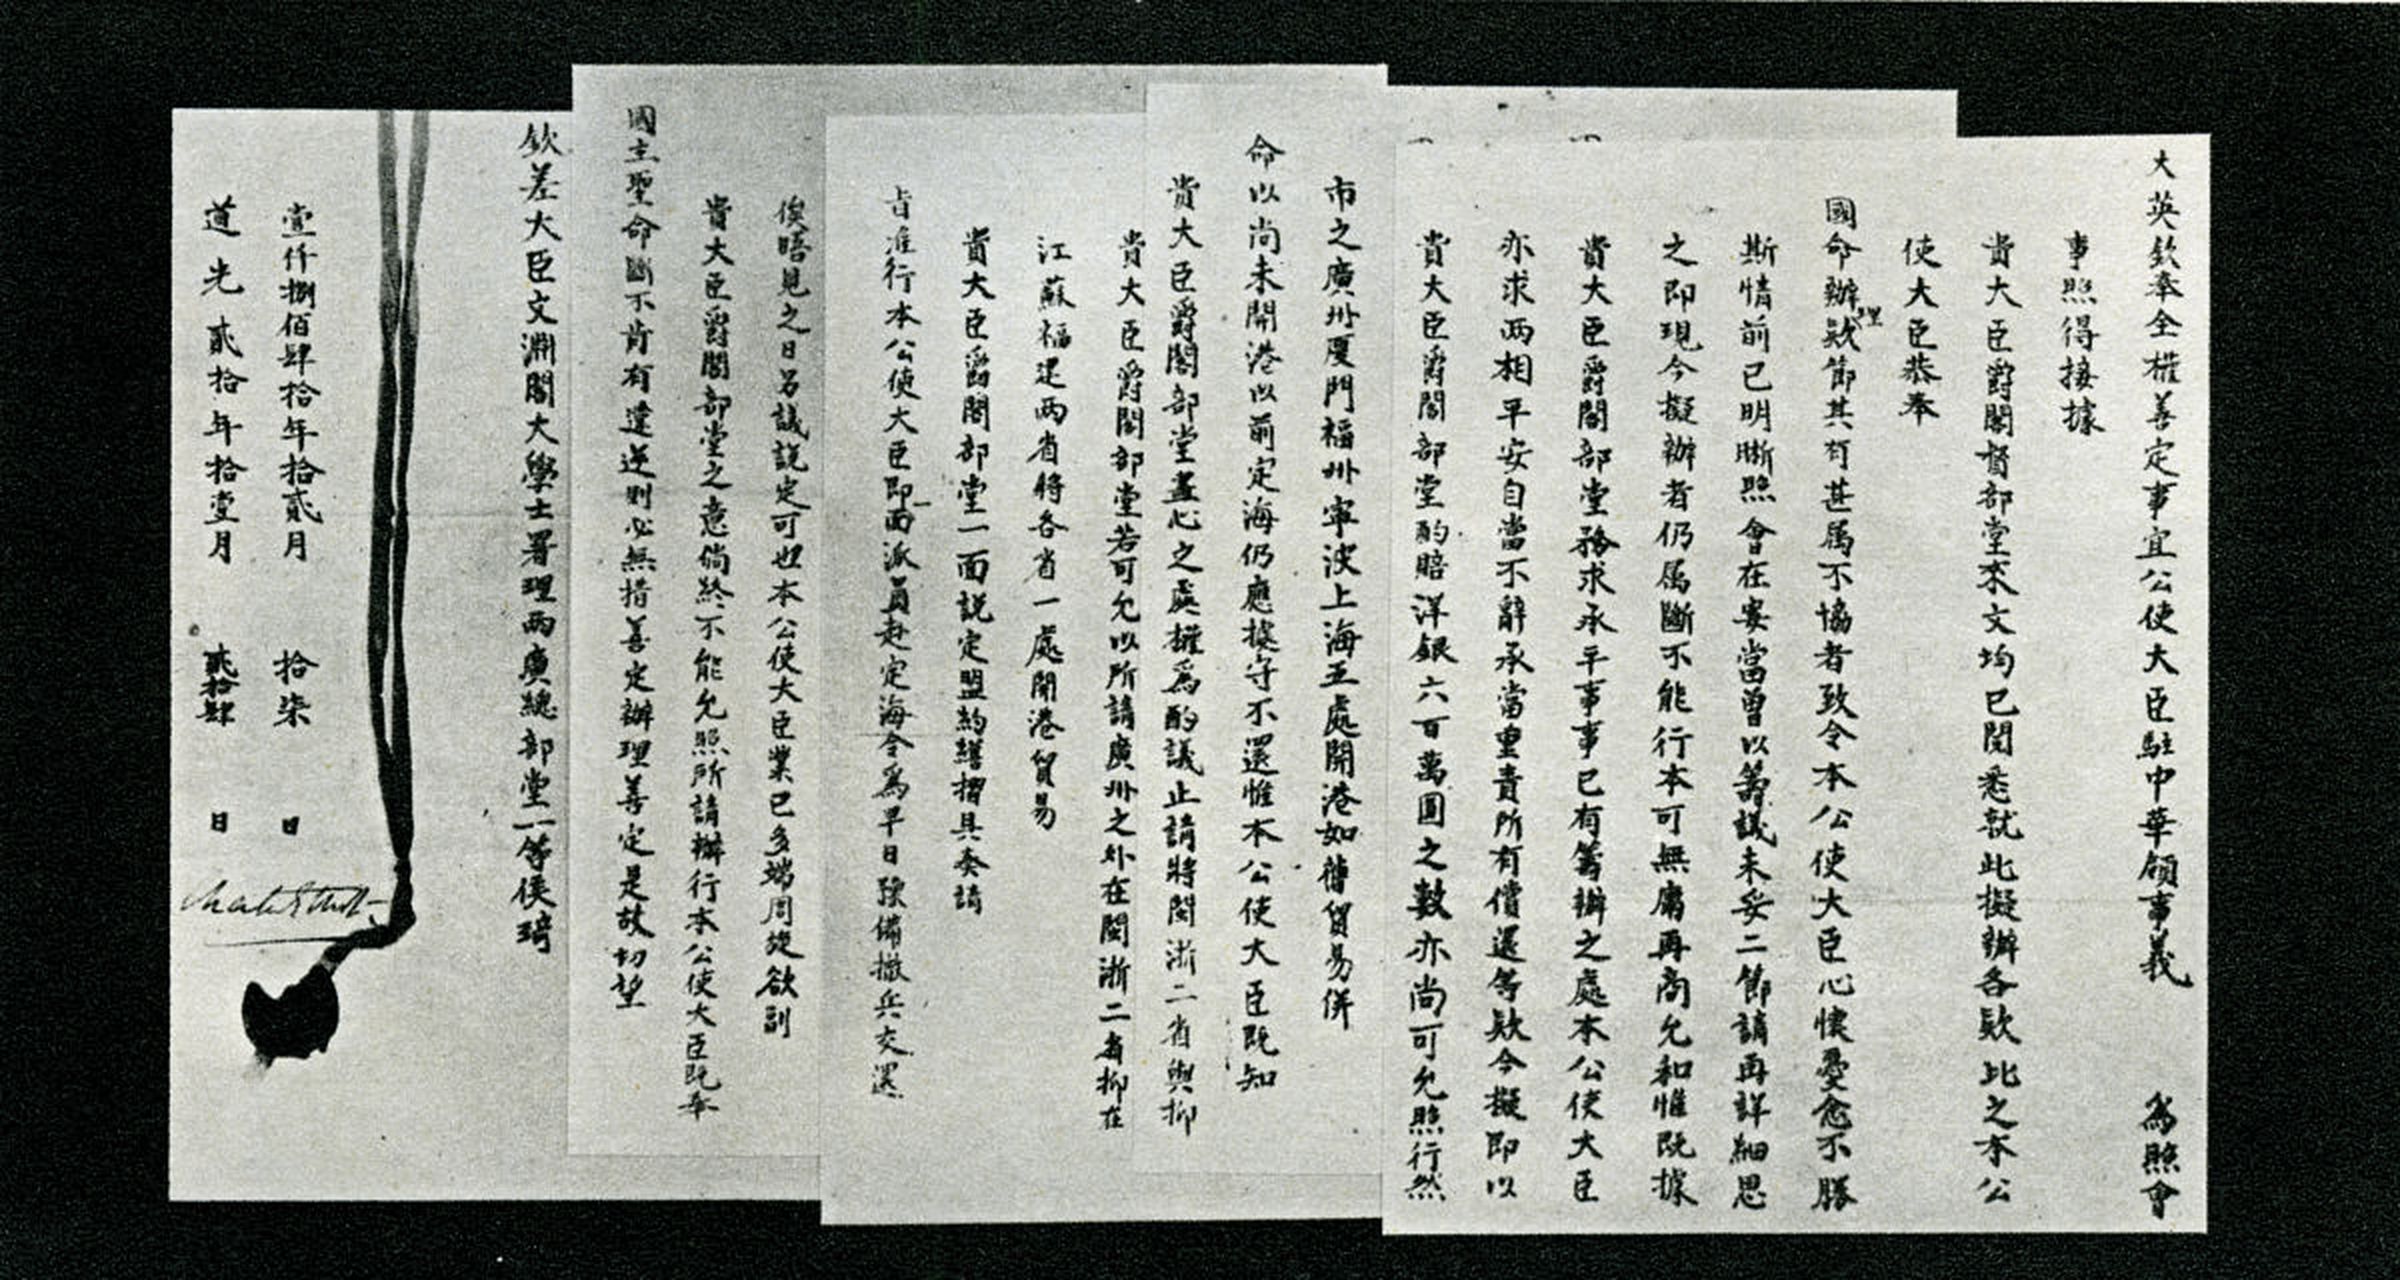 大英欽奉全權善定事宜公使大臣駐中華領事義　為照會
事照得接據
貴大臣爵閣督部堂來文均已閱悉就此擬辦各欵比之本公
使大臣恭奉
國命辦理欵節其有甚属不協者致令本公使大臣心懷憂愈不勝
斯情前已明晰照會在案當曾以籌議未妥二節請再詳細思
之即現今擬辦者仍属斷不能行本可無庸再商允和惟既據
貴大臣爵閣部堂務求承平事事已有籌辦之處本公使大臣
亦求两相平安自當不辭承當重責所有償還等欵今擬即以
貴大臣爵閣部堂酌賠洋銀六百萬圓之數亦尚可允照行然
市之廣州厦門福州寧波上海五處開港如舊貿易併
命以尚未開港以前定海仍應據守不還惟本公使大臣既知
貴大臣爵閣部堂盡心之處權爲酌議止請將閩浙二省與抑
貴大臣爵閣部堂若可允以所請廣州之外在閩浙二省抑在
江蘇福建两省將各省一處開港貿易
貴大臣爵閣部堂一面説定盟約繕摺具奏請
旨准行本公使大臣即一面派員赴定海令為早日豫備撤兵交還
俟晤見之日另議説定可也本公使大臣業已多端周旋欲副
貴大臣爵閣部堂之意倘終不能允照所請辦行本公使大臣既奉
國主聖命斷不肯有違逆則必無措善定辦理善定是故切望
欽差大臣文淵閣大學士署理两廣總部堂一等侯琦
壹仟捌佰肆拾年拾貳月　拾柒　日
道光貳拾年拾壹月　貳拾肆　日